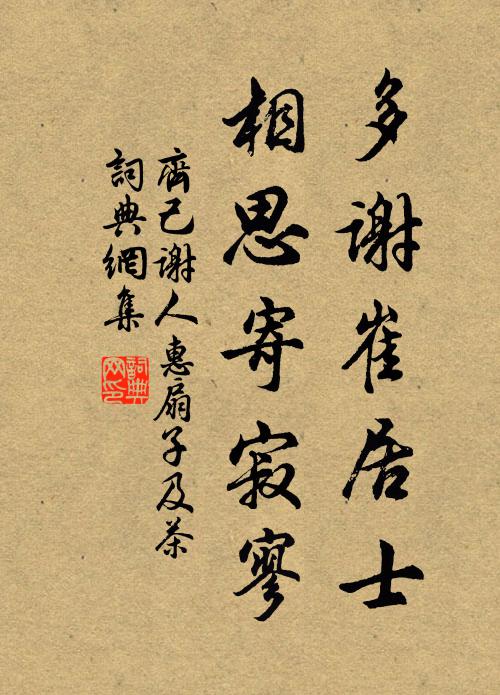 多謝崔居士
相思寄寂寥
齊己謝人惠扇子及茶
詞典網集
詞典
网印